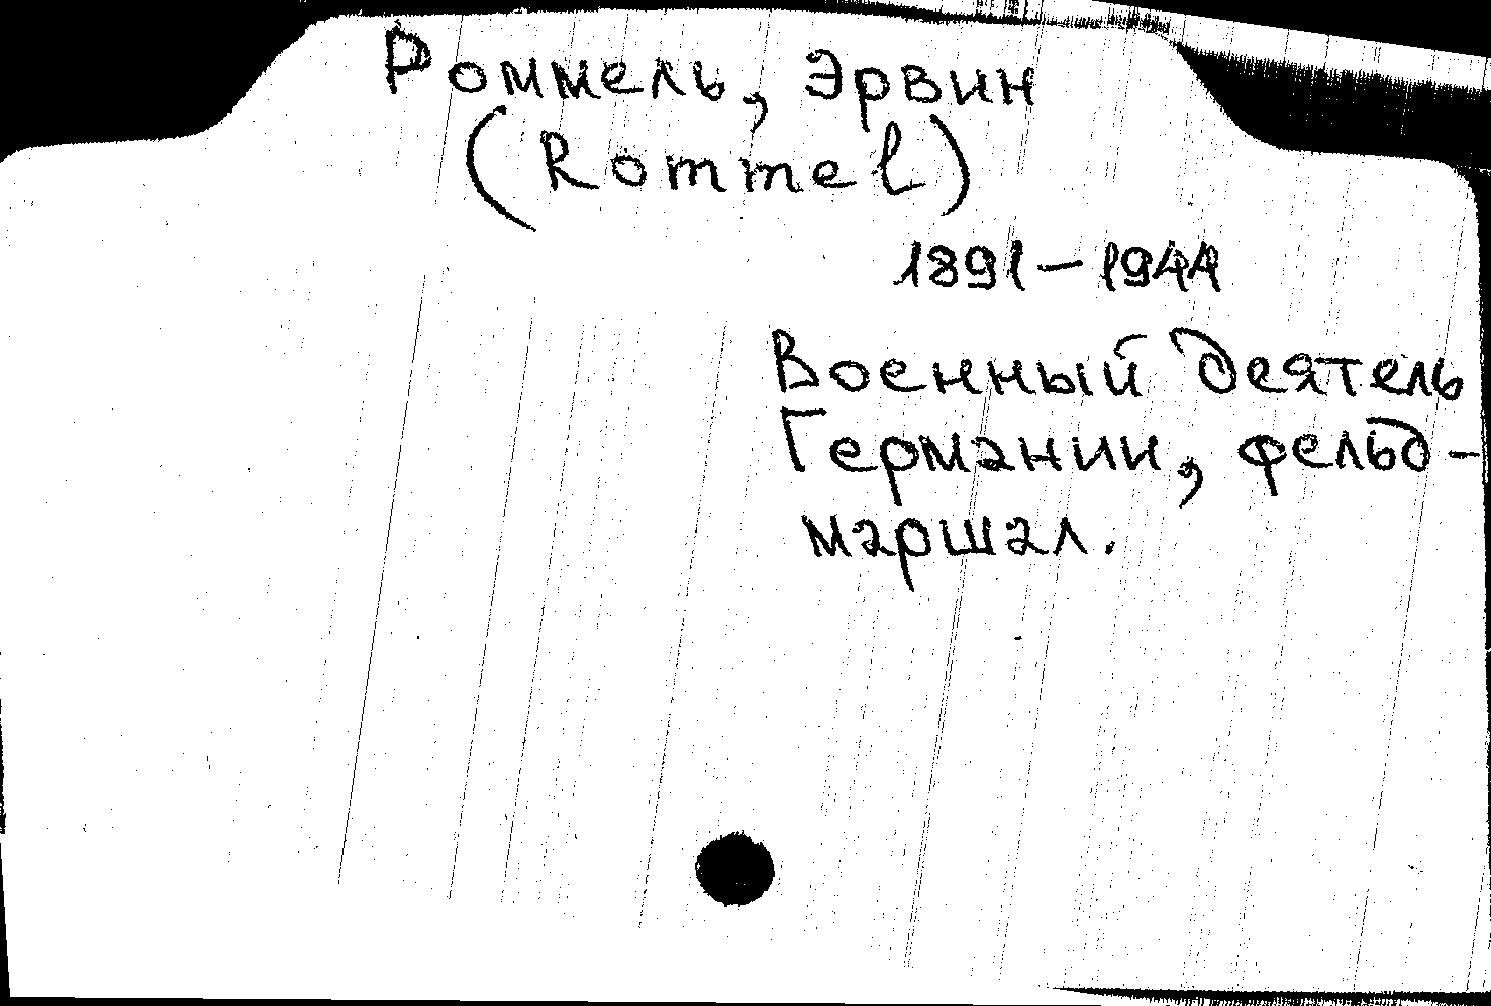 Роммель, Эрвин
(Rommel)
1891–1944
Военный деятель
Германии, фельд-
маршал.